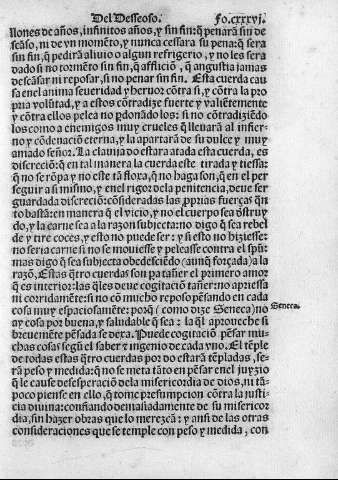 Del Desseoso. Fo.cxxxvj.
llones de años, infinitos años, y sin fin: q̃ penará sin de
scãso, ni de vn momẽto, y nunca cessara su pena: q̃ sera
sin fin, q̃ pedirá aliuio o algun refrigerio, y no les sera
dado si no tormẽto sin fin, q̃ afflició, q̃ angustia jamas
descãsar ni reposar, si no penar sin fin. Esta cuerda cau
sa enel anima seueridad y heruor cõtra si, y cõtra la pro
pria volũtad, y a estos cõtradize fuerte y valiẽtemente
y cõtra ellos pelea no pdonãdo los: si no cõtradiziẽdo
los como a enemigos muy crueles q̃ lleuarã al infier-
no y cõdenació eterna, y la apartarã de su dulce y muy
amado señor. La clauija do estara atada esta cuerda, es
discreció: q̃ en tal manera la cuerda este tirada y tiessa:
q̃ no se rõpa y no este tã floxa, q̃ no haga son, q̃ en el per
seguir a si mismo, y enel rigor dela penitencia, deue ser
guardada discreció: cõsideradas las pprias fuerças q̃n
to bastã: en manera q̃ el vicio, y no el cuerpo sea dstruy
do, y la carne sea a la razon subjecta: no digo q̃ sea rebel
de y tire coces, y esto no puede ser: y si esto no hiziesse:
no seria carne si no se mouiesse y peleasse contra el spũ:
mas digo q̃ sea subjecta obedesciẽdo (aunq̃ forçada) a la
razõ, Estas q̃tro cuerdas son pa tañer el primero amor
q̃ es interior: las q̃les deue cogitació tañer: no apriessa
ni corridamẽte: si no cõ mucho reposo pẽsando en cada
cosa muy espaciosamẽte: porq̃ (como dize Seneca) no
Seneca.
ay cosa por buena, y saludable q̃ sea: la q̃l aproueche si
breuemẽte pẽsada se dexa. Puede cogitació pẽsar mu
chas cosas segũ el saber y ingenio de cada vno. El tẽple
de todas estas q̃tro cuerdas por do estarã tẽpladas, se-
rá peso y medida: q̃ no se meta tãto en pẽsar enel juyzio
q̃ le cause desesperació dela misericordia de dios, ni tã-
poco piense en ello, q̃ tome presumpcion cõtra la justi-
cia diuina: confiãndo demasiadamente de su misericor
dia, sin hazer obras que lo merezcã: y ansi de las otras
consideraciones que se temple con peso y medida, con